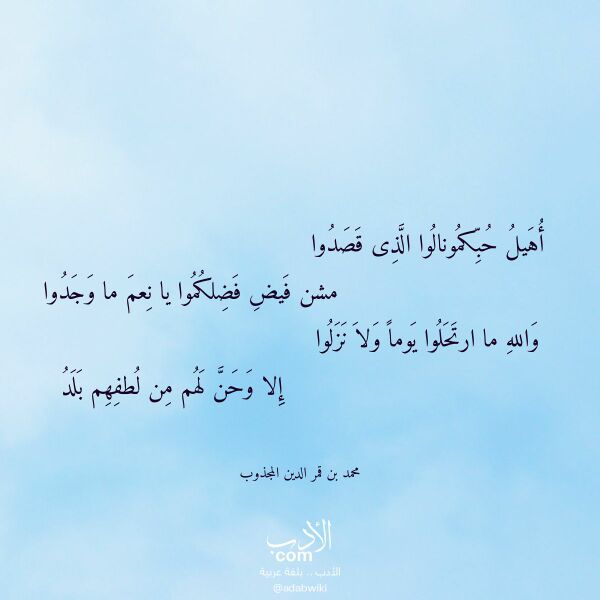 أُهَيلُ حُبِّكمُونالُوا الَّذِى قَصَدُوا
مشن فَيضِ فَضِلكُمُوا يا نِعمَ ما وَجَدُوا
وَاللهِ ما ارتَحَلُوا يَوماً وَلاَ نَزَلُوا
إِلا وَحَنَّ لَهُم مِن لُطفِهِم بَلَدُ
محمد بن قمر الدين المجذوب
الأدب
.com
الأدب .. بلغة عربية
@adabwiki